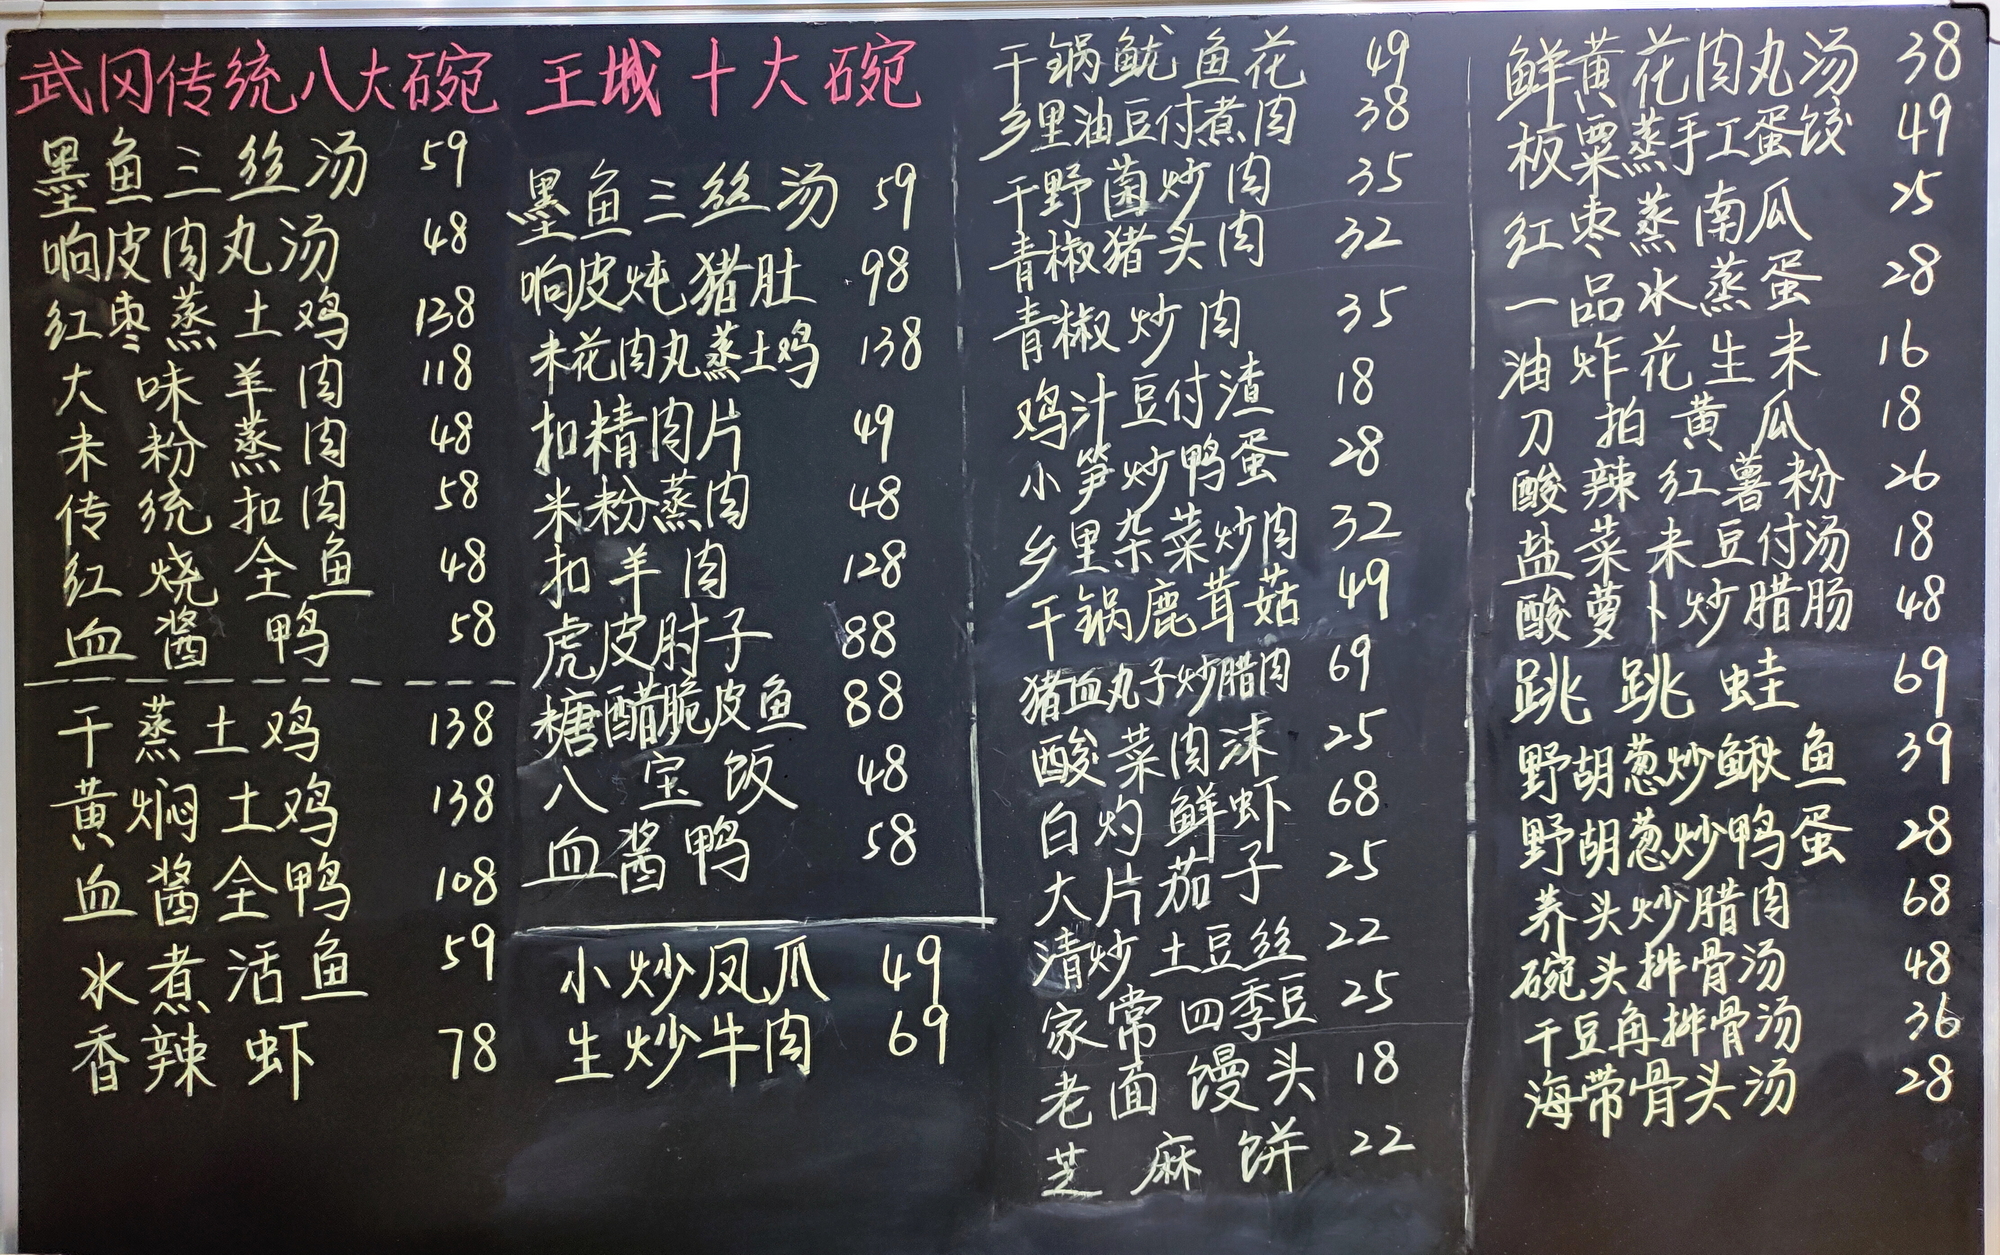 武冈传统八大碗
墨鱼三丝汤 59
响皮肉丸汤 48
红枣蒸土鸡 138
大味羊肉 118
米粉蒸肉 48
传统扣肉 58
红烧全鱼 48
血酱鸭 58
干蒸土鸡 138
黄焖土鸡 138
血酱全鸭 108
水煮活鱼 59
香辣虾 78
王城十大碗
墨鱼三丝汤 59
响皮炖猪肚 98
米花肉丸蒸土鸡 138
扣精肉片 49
米粉蒸肉 48
扣羊肉 128
虎皮肘子 88
糖醋脆皮鱼 88
八宝饭 48
血酱鸭 58
小炒凤爪 49
生炒牛肉 69
干锅鱿鱼花 49
乡里油豆付煮肉 38
干野菌炒肉 35
青椒猪头肉 32
青椒炒肉 35
鸡汁豆付渣 18
小笋炒鸭蛋 28
乡里杂菜炒肉 32
干锅鹿茸菇 49
猪血丸子炒腊肉 69
酸菜肉沫 25
白灼鲜虾 68
大片茄子 25
清炒土豆丝 22
家常四季豆 25
老面馒头 18
芝麻饼 22
鲜黄花肉丸汤 38
板粟蒸手工蛋饺 49
红枣蒸南瓜 25
一品水蒸蛋 28
油炸花生米 16
刀拍黄瓜 18
酸辣红薯粉 26
盐菜米豆付汤 18
酸萝卜炒腊肠 48
跳跳蛙 69
野胡葱炒鳅鱼 39
野胡葱炒鸭蛋 28
荞头炒腊肉 68
碗头排骨汤 48
干豆角排骨汤 36
海带骨头汤 28